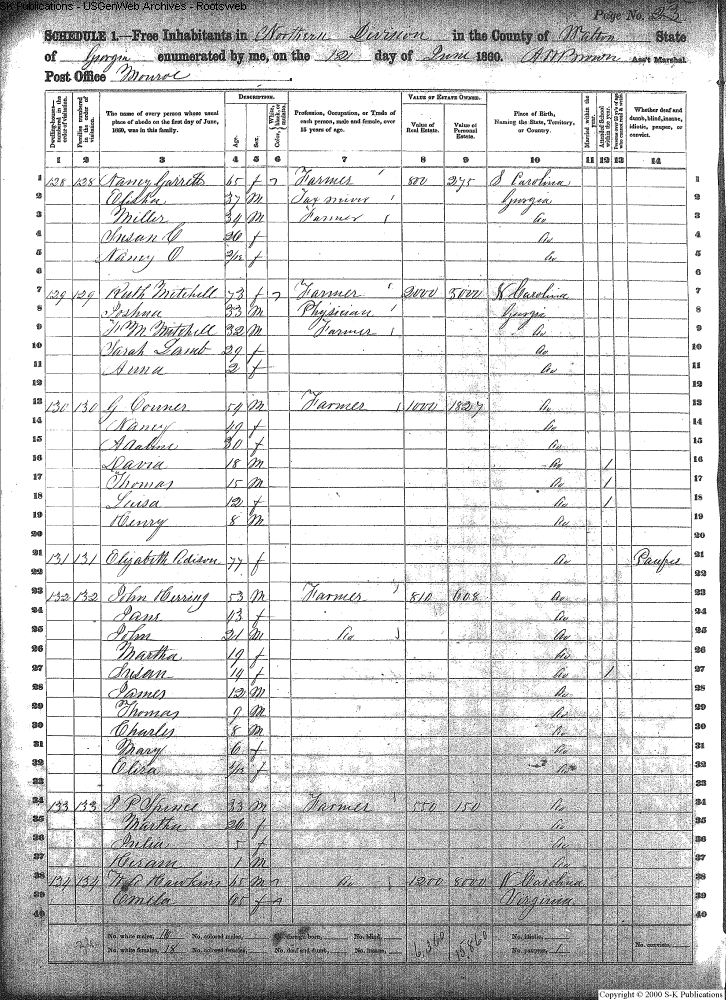 S-K Publications - USGenWeb Archives - Rootsweb
Page No. 23
SCHEDULE 1.—Free Inhabitants in Northern Division in the County of Walton State
of Georgia enumerated by me, on the 12 day of June 1860. Brown Ass't Marshal.
Post Office Monroe
Dwelling-houses numbered in the order of visitation.
Families numbered in the order of visitation.
The name of every person whose usual place of abode on the first day of June, 1860, was in this family.
DESCRIPTION.
Age.
Sex.
Color, White, black, or mulatto.
Profession, Occupation, or Trade of each person, male and female, over 15 years of age.
VALUE OF ESTATE OWNED.
Value of Real Estate.
Value of Personal Estate.
Place of Birth, Naming the State, Territory, or Country.
Married within the year.
Attended School within the year.
Whether deaf and dumb, blind, insane, idiotic, pauper, or convict.
1 2 3 4 5 6 7 8 9 10 11 12 13 14
1 128 128 Nancy Garrett 65 f Farmer 800 275 S Carolina 1
2 37 M Georgia 2
3 Miller 34 M Farmer Do 3
4 Susan C 26 f Do 4
5 Nancy O f Do 5
6 6
7 129 129 Ruth Mitchell 73 f Farmer 2000 5000 N Carolina 7
8 Joshua 33 M Physician Georgia 8
9 Mitchell 32 M Farmer Do 9
10 Sarah Lamb 29 f Do 10
11 Anna 2 f Do 11
12 12
13 130 130 G Conner 54 M Farmer 1000 1827 Do 13
14 Nancy 49 f Do 14
15 Adaline 30 f Do 15
16 David 18 M Do 1 16
17 Thomas 15 M Do 1 17
18 Luisa 12 f Do 1 18
19 Henry 8 M Do 19
20 20
21 131 131 Elizabeth Adison 77 f Do 21
22 22
23 132 132 John Herring 53 M Farmer 810 608 Do 23
24 Jane 43 f Do 24
25 John 21 M Do Do 25
26 Martha 19 f Do 26
27 Susan 14 f Do 1 27
28 James 12 M Do 28
29 Thomas 9 M Do 29
30 Charles 8 M Do 30
31 Mary 6 f Do 31
32 f Do 32
33 33
34 133 133 P Spence 33 M Farmer 550 150 Do 34
35 Martha 26 f Do 35
36 Julia 5 f Do 36
37 Hiram 1 M Do 37
38 134 134 Hawkins 65 M Do 1200 8000 N Carolina 38
39 f Virginia 39
40 40
No. white males, No. colored males, foreign born, No. blind, 6,360 15,860 No. idiotic,
No. white females, 18 No. colored females, No. deaf and dumb, No. insane, No. paupers, 1 No. convicts,
Copyright © 2000 S-K Publications